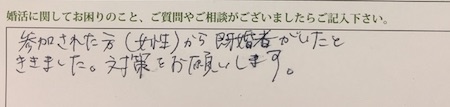 婚活に関してお困りのこと、ご質問やご相談がございましたらご記入下さい。
参加された方(女性)から既婚者がいたと
ききました。対策をお願いします。